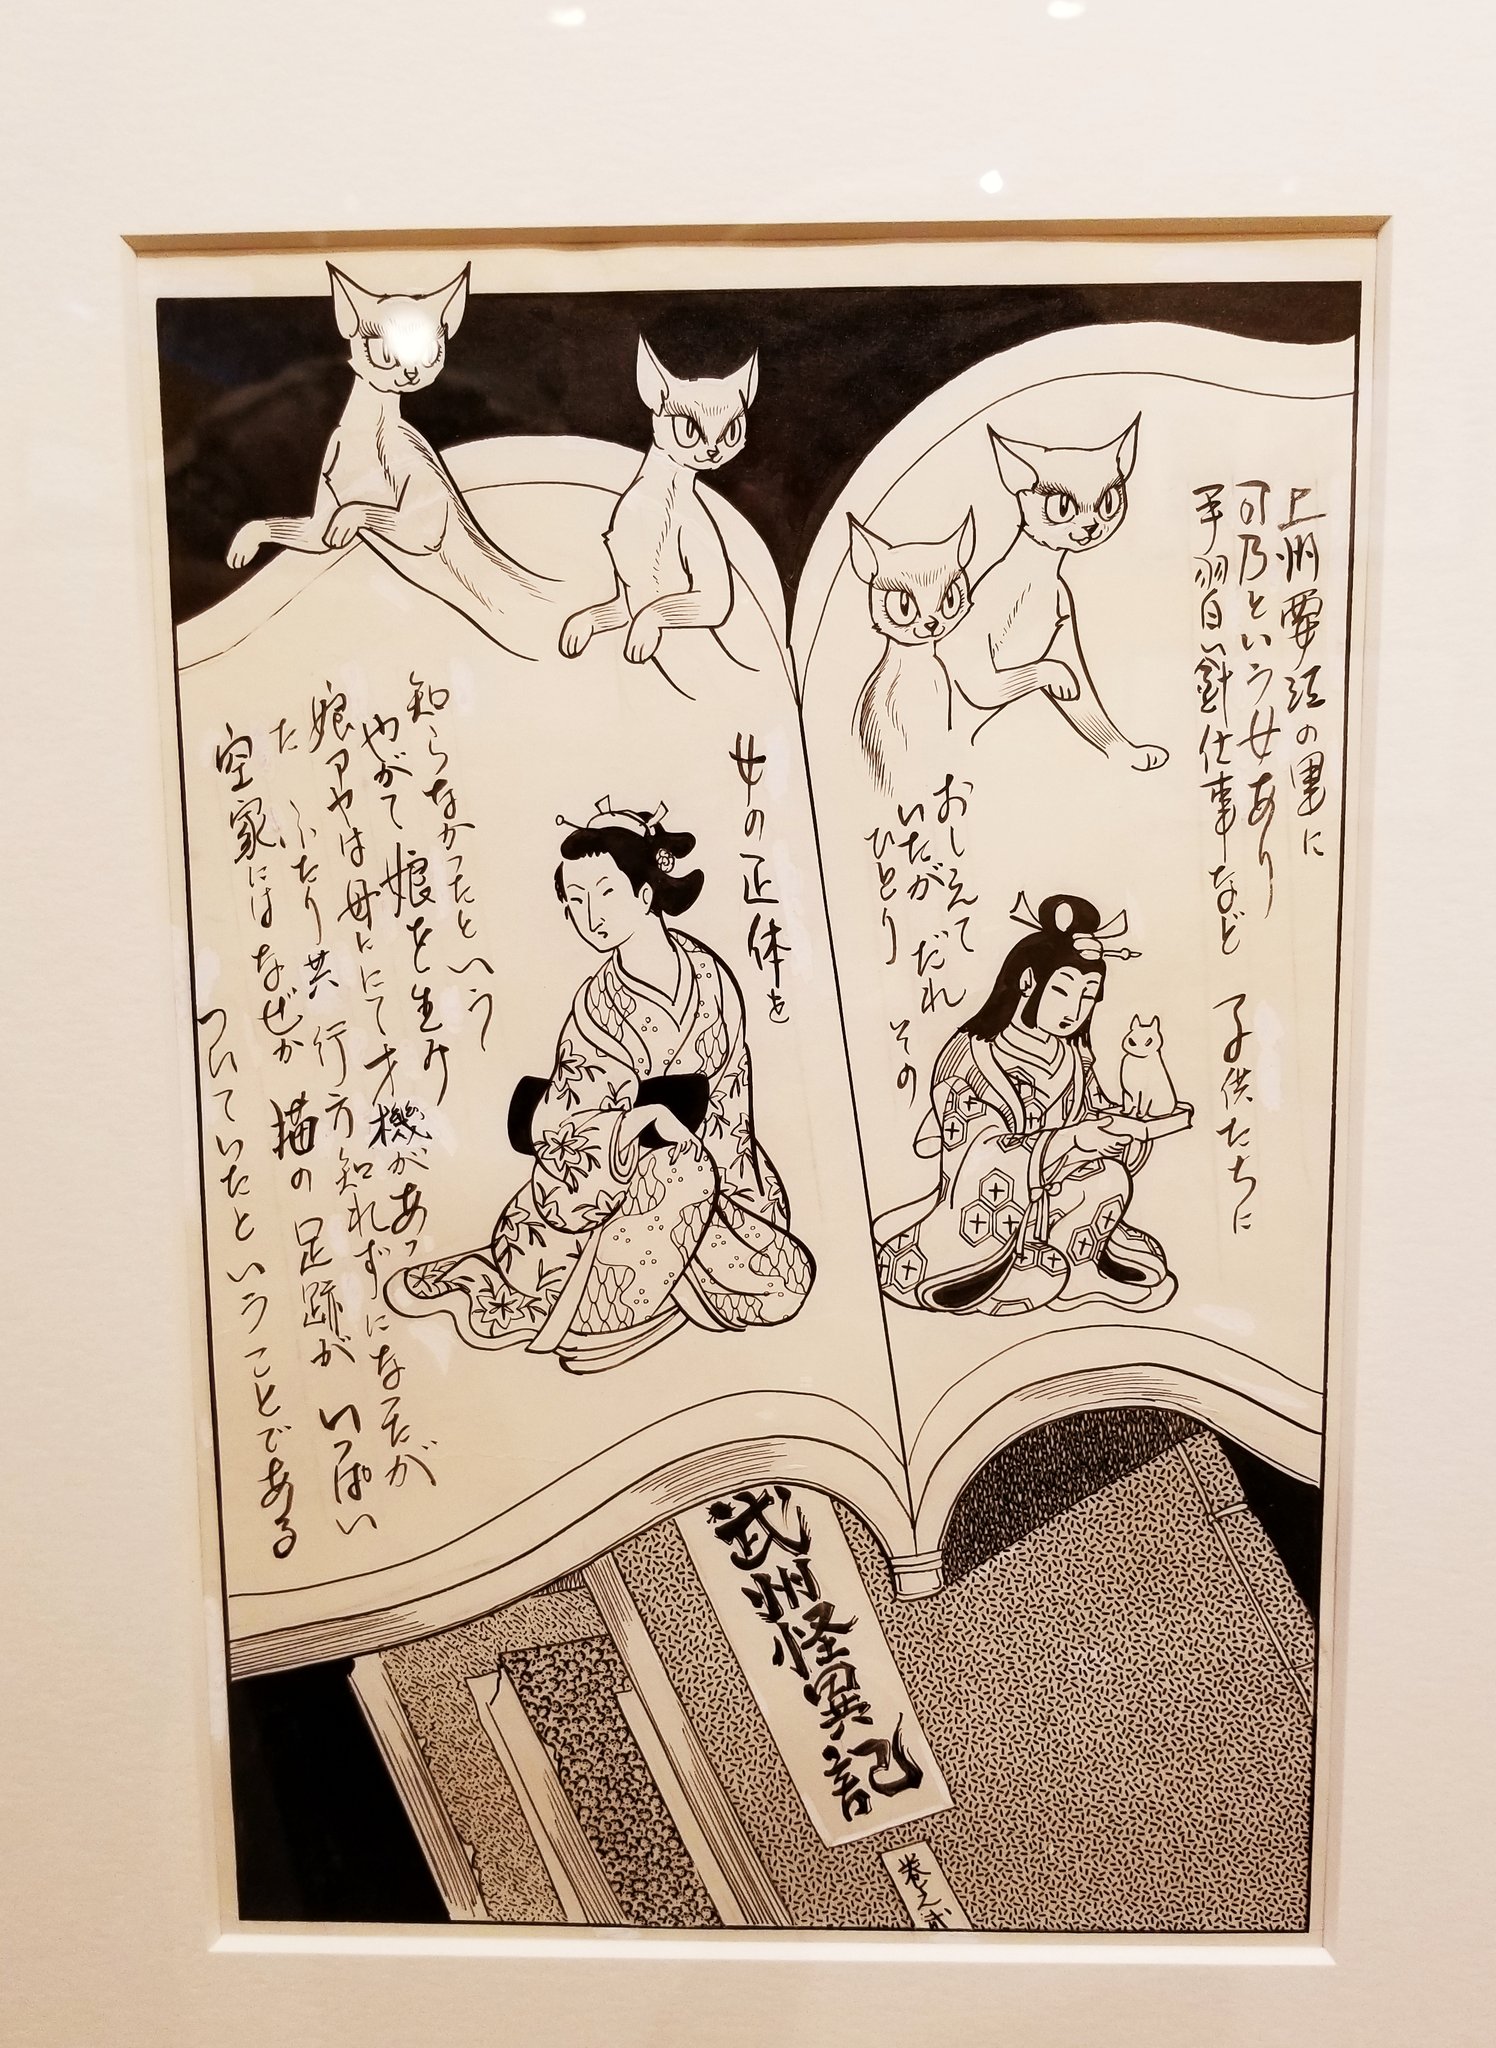 上州粟江の里に
可乃という女あり
手習い針仕事など 子供たちに
おしえて
いたが だれ
ひとり その
女の正体を
知らなかったという
やがて娘を生み
娘アヤは母ににて才機があっ
た ふたり共行方知れずになったが
空家にはなぜか猫の足跡がいっぱい
ついていたということである
武州怪異記
巻之弐